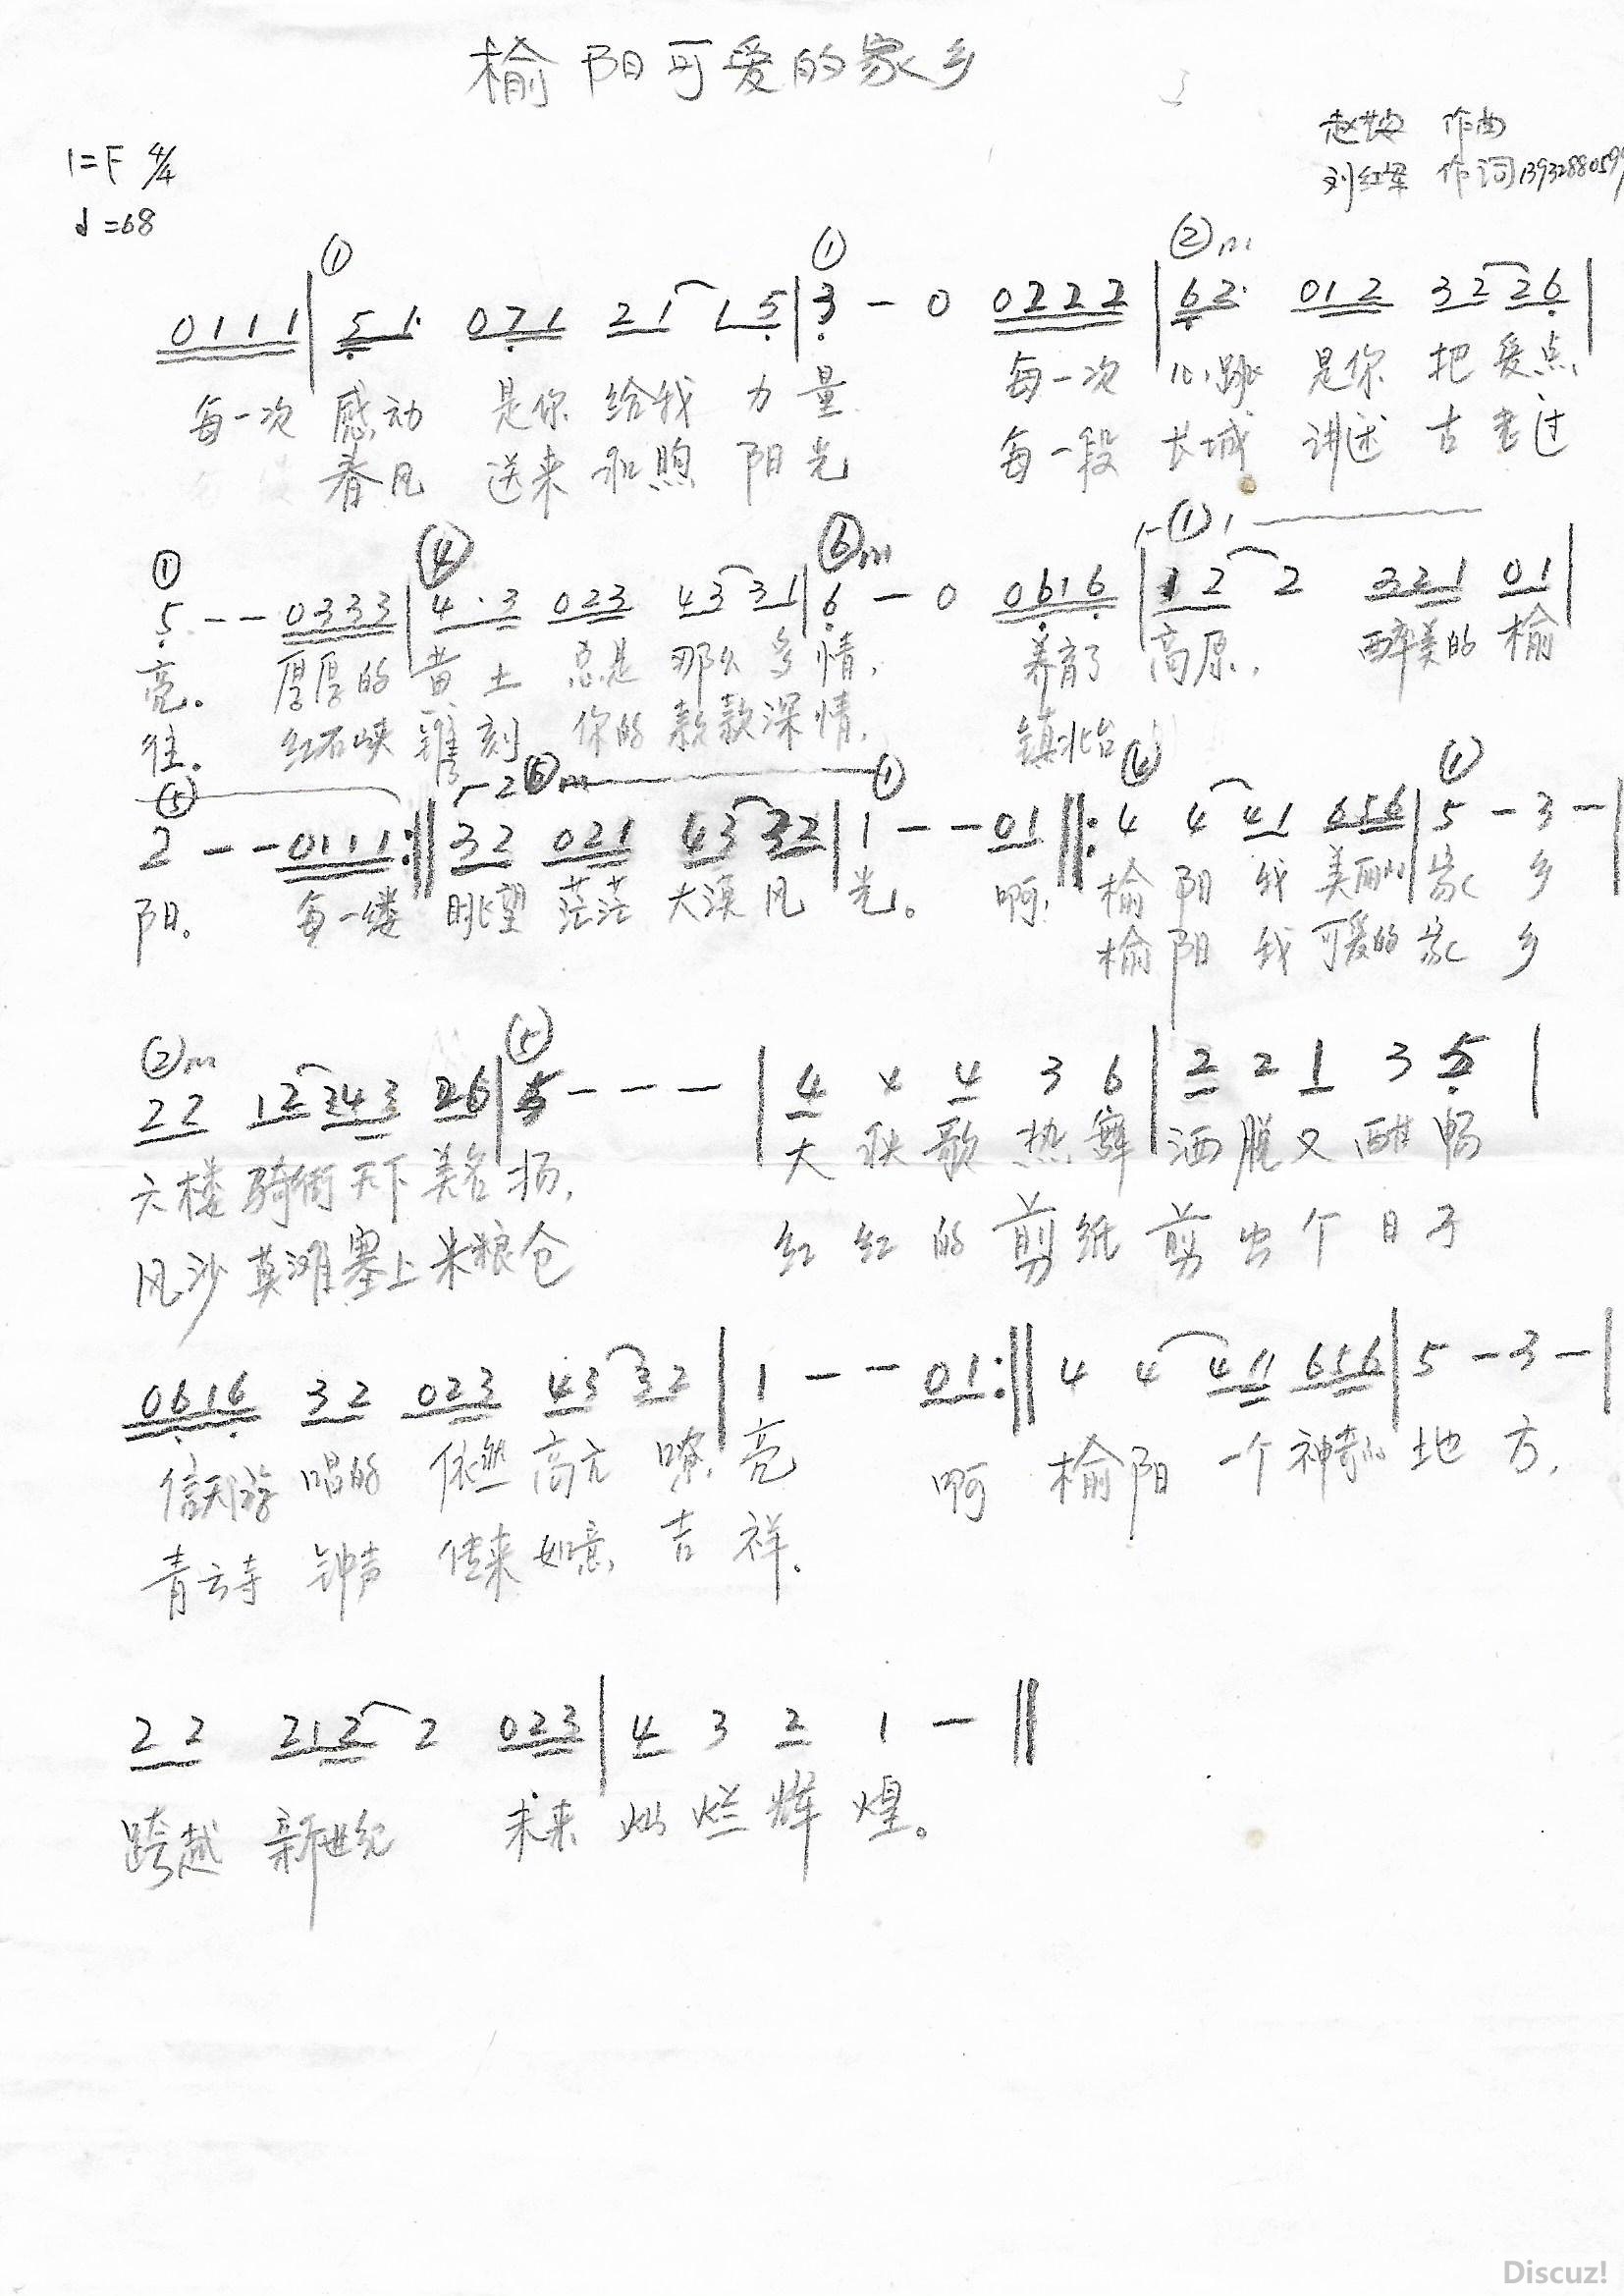 榆阳可爱的家乡
作曲
1=F 4/4
刘红军 作词
♩=68
① ① ②m
0111 | 5 1· 071 21 15 | 3 - 0 0222 | 62· 012 32 26 |
每一次 感动 是你 给我 力量 每一次 心跳 是你 把爱点
春风 送来 和煦 阳光 每一段 长城 讲述 古老过
① ④ ⑥m ①
5 - - 0333 | 4·3 023 43 31 | 6 - 0 0616 | 12 2 321 01 |
亮。 厚厚的 黄土 总是 那么多情, 养育了 高原, 醉美的 榆
往。 红石峡 雕刻 你的 款款深情, 镇北台
⑤ 2 ⑥m ① ④ ①
2 - - 0111 :‖ 32 021 43 32 | 1 - - 01 ‖: 4 4 41 656 | 5 - 3 - |
阳。 每一缕 眺望 茫茫 大漠风光。 啊, 榆阳 我 美丽的 家乡
榆阳 我 可爱的 家乡
②m ⑤
22 12 243 26 | 5 - - - | 4 x 4 3 6 | 2 2 1 3 5 |
六楼骑街天下美名扬, 大秧歌热舞 洒脱又酣畅
风沙莫滩塞上米粮仓 红红的剪纸 剪出个日子
0616 32 023 43 32 | 1 - - 01 :‖ 4 4 411 656 | 5 - 3 - |
信天游 唱的 依然 高亢 嘹亮 啊 榆阳 一个 神奇的 地方,
青云寺 钟声 传来 如意 吉祥。
22 212 2 023 | 4 3 2 1 - ‖
跨越 新世纪 未来 灿烂辉煌。
Discuz!